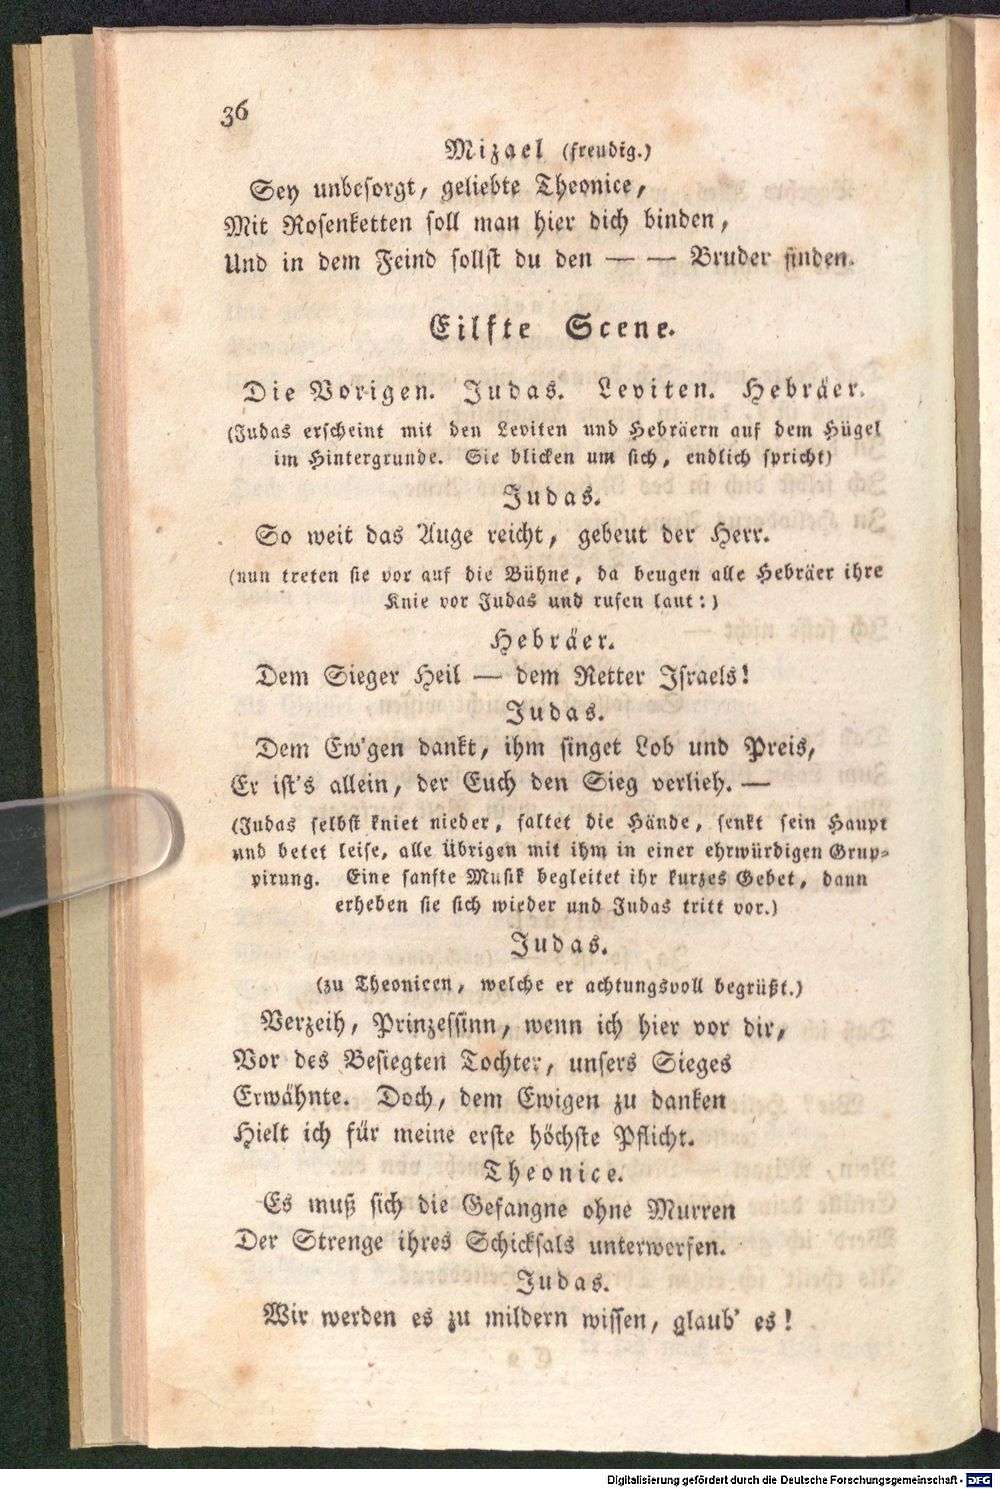 36
Mizael (freudig.)
Sey unbesorgt, geliebte Theonice,
Mit Rosenketten soll man hier dich binden,
Und in dem Feind sollst du den — — Bruder finden.
Eilfte Scene.
Die Vorigen. Judas. Leviten. Hebräer.
(Judas erscheint mit den Leviten und Hebräern auf dem Hügel
im Hintergrunde. Sie blicken um sich, endlich spricht)
Judas.
So weit das Auge reicht, gebeut der Herr.
(nun treten sie vor auf die Bühne, da beugen alle Hebräer ihre
Knie vor Judas und rufen laut:)
Hebräer.
Dem Sieger Heil — dem Retter Israels!
Judas.
Dem Ew'gen dankt, ihm singet Lob und Preis,
Er ist's allein, der Euch den Sieg verlieh. —
(Judas selbst kniet nieder, faltet die Hände, senkt sein Haupt
und betet leise, alle Übrigen mit ihm in einer ehrwürdigen Grup-
pirung. Eine sanfte Musik begleitet ihr kurzes Gebet, dann
erheben sie sich wieder und Judas tritt vor.)
Judas.
(zu Theonicen, welche er achtungsvoll begrüßt.)
Verzeih, Prinzessinn, wenn ich hier vor dir,
Vor des Besiegten Tochter, unsers Sieges
Erwähnte. Doch, dem Ewigen zu danken
Hielt ich für meine erste höchste Pflicht.
Theonice.
Es muß sich die Gefangne ohne Murren
Der Strenge ihres Schicksals unterwerfen.
Judas.
Wir werden es zu mildern wissen, glaub' es!
Digitalisierung gefördert durch die Deutsche Forschungsgemeinschaft - DFG